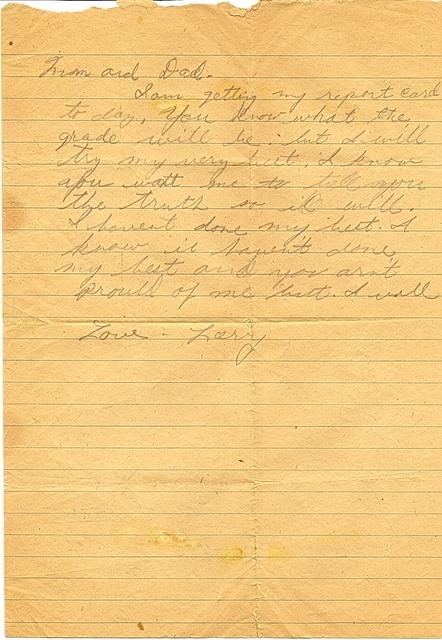 Mom and Dad.
I am getting my report card
to day, You know what the
grade will be. but I will
try my very best, I know
you watt me to tell you
the truth so il will.
I havent done my best. I
know il haven't done
my best and you arn't
proud of me but I will
Love. Larry